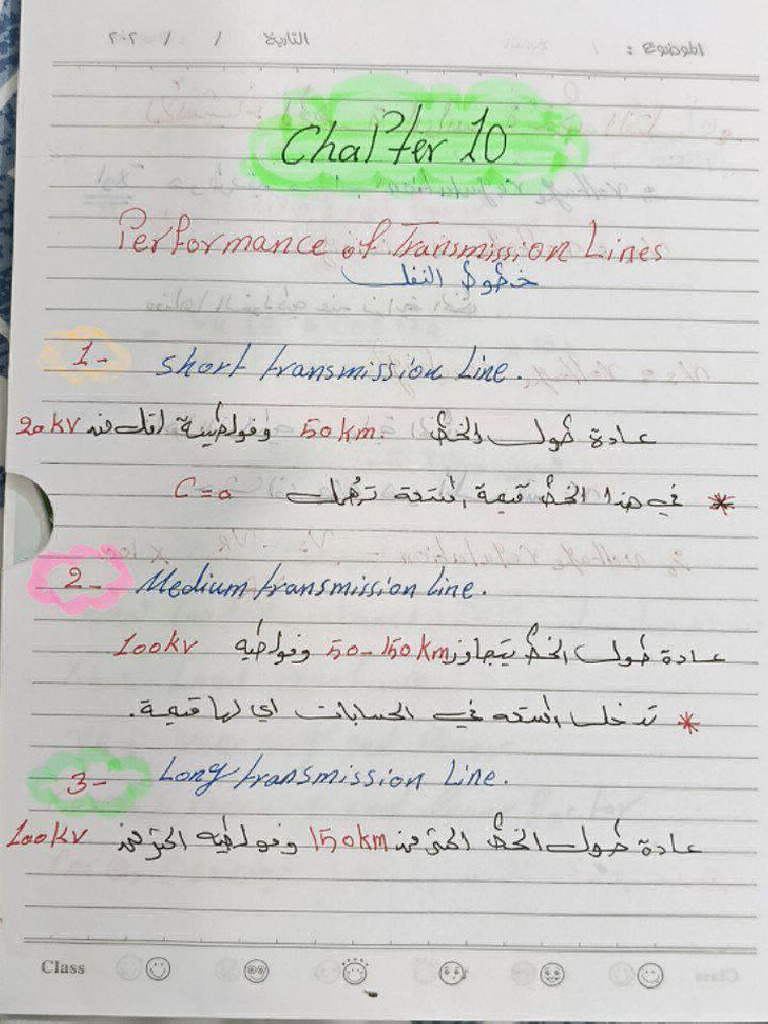 Chapter 10
Performance of Transmission Lines
خطوط النقل
1- short transmission Line.
عادة طول الخط 50 km. وفولطية اقل من 20 kV
* في هذا الخط قيمة المتسعة تهمل C=0
2- Medium transmission line.
عادة طول الخط يتجاوز 50-150 km وفولطيه 100 kV
* تدخل المتسعه في الحسابات اي لها قيمة.
3- Long transmission Line.
عادة طول الخط اكثر من 150 km وفولطيه اكثر من 100 kV
Class